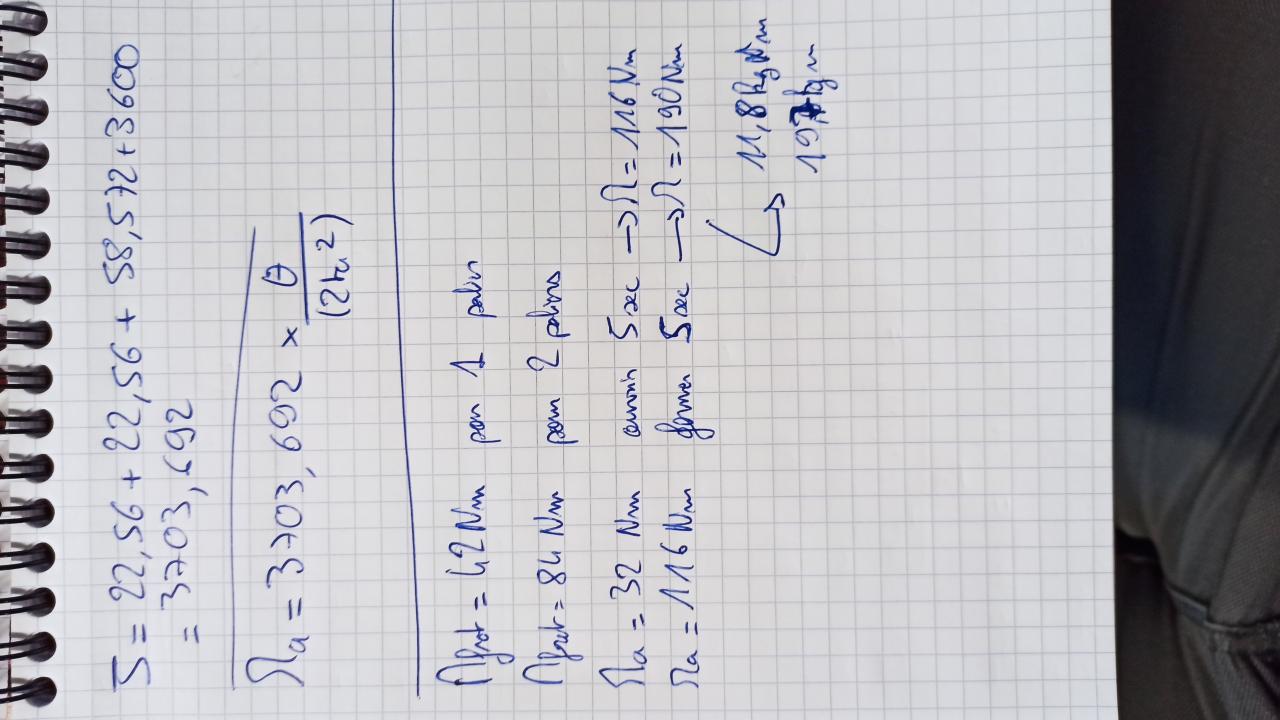 J = 22,56 + 22,56 + 58,572 + 3600
= 3703,692
Ma = 3703,692 x θ / (2ta²)
Mfrot = 42 Nm pour 1 palier
Mfrot = 84 Nm pour 2 paliers
Ma = 32 Nm ouvrir 5 sec → M = 116 Nm
Ma = 116 Nm fermer 5 sec → M = 190 Nm
↳ 11,8 kg Nm
19 kg m